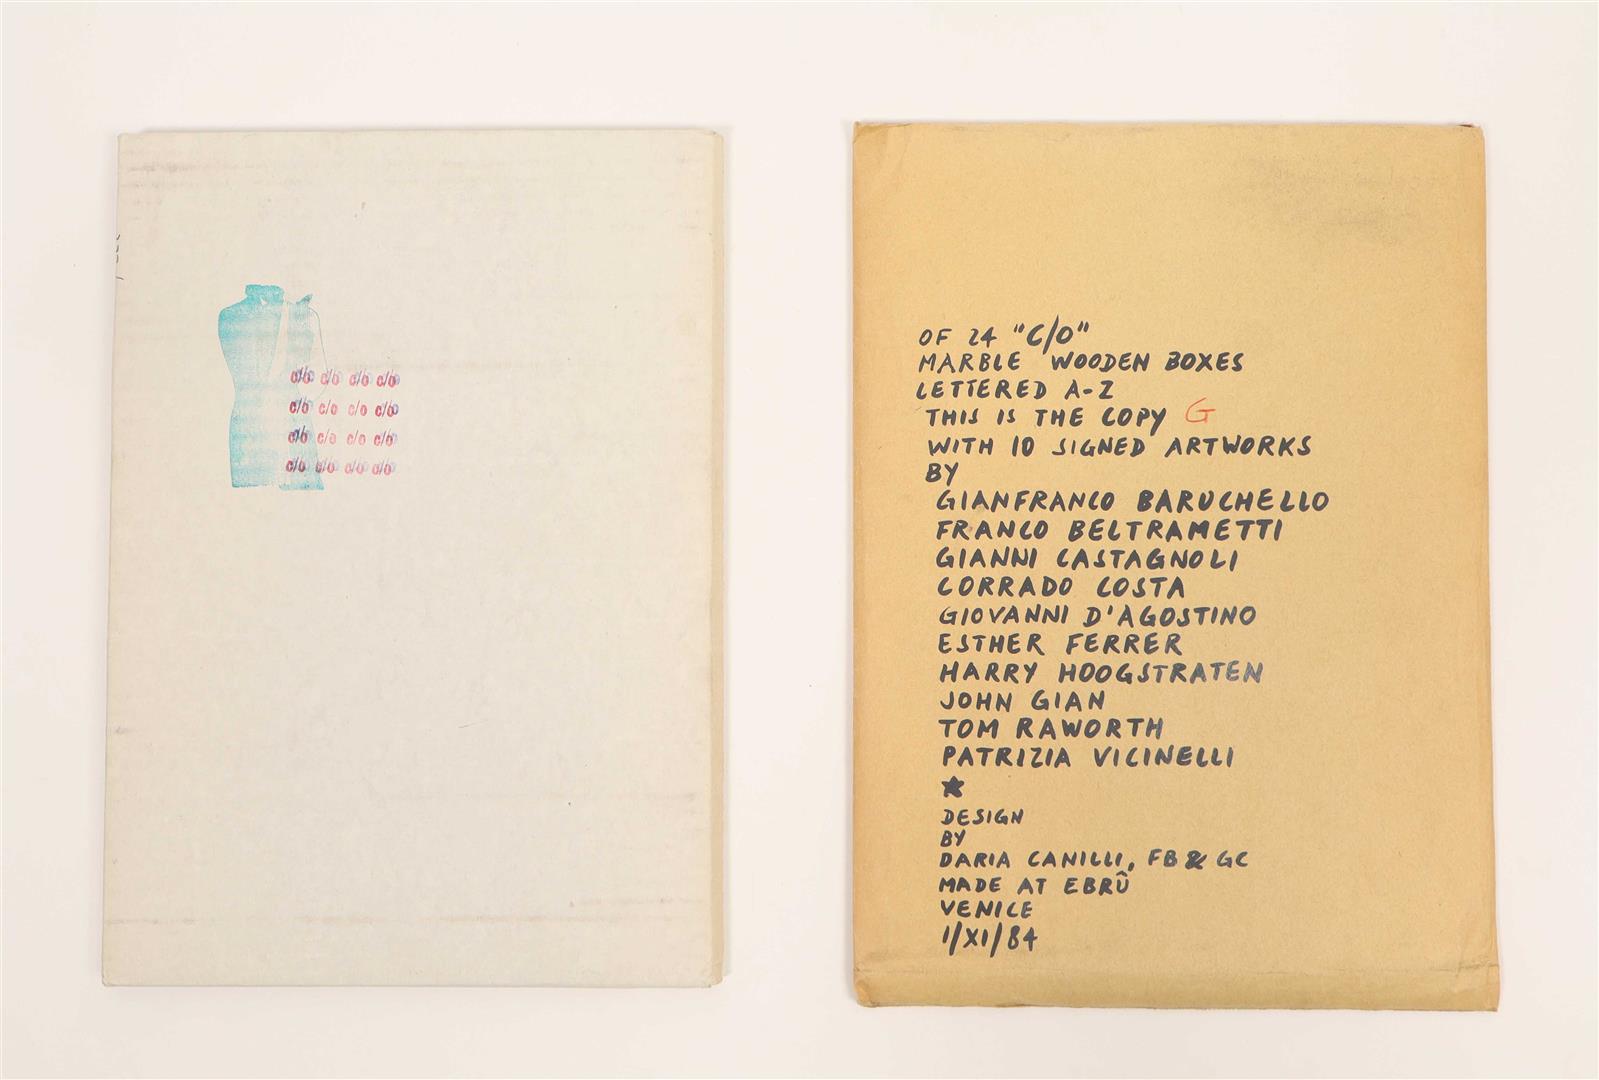 c/o c/o c/o c/o
c/o c/o c/o c/o
c/o c/o c/o c/o
c/o c/o c/o c/o
OF 24 "C/O"
MARBLE WOODEN BOXES
LETTERED A-Z
THIS IS THE COPY G
WITH 10 SIGNED ARTWORKS
BY
GIANFRANCO BARUCHELLO
FRANCO BELTRAMETTI
GIANNI CASTAGNOLI
CORRADO COSTA
GIOVANNI D'AGOSTINO
ESTHER FERRER
HARRY HOOGSTRATEN
JOHN GIAN
TOM RAWORTH
PATRIZIA VICINELLI
★
DESIGN
BY
DARIA CANILLI, FB & GC
MADE AT EBRÛ
VENICE
1/XI/84